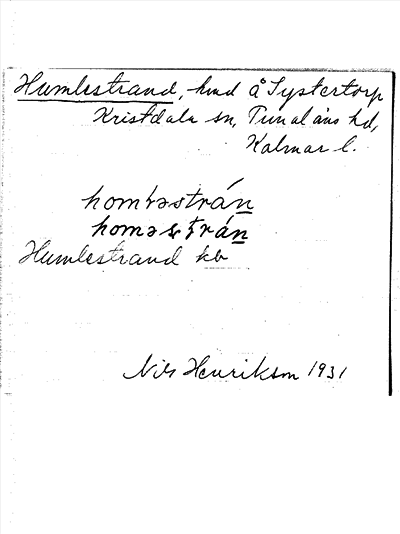 Humlestrand, hmd å Systertorp
Kristdala sn, Tunaläns hd,
Kalmar l.
homɫəstrán
homəstrán
Humlestrand kb
Nils Henrikson 1931